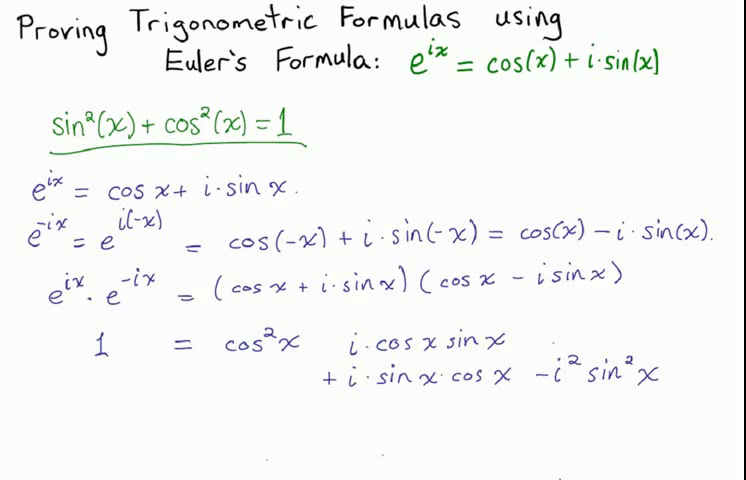 Proving Trigonometric Formulas using
Euler's Formula: e^{ix} = cos(x) + i·sin(x)
sin²(x) + cos²(x) = 1
e^{ix} = cos x + i·sin x.
e^{-ix} = e^{i(-x)} = cos(-x) + i·sin(-x) = cos(x) - i·sin(x).
e^{ix}·e^{-ix} = (cos x + i·sin x)(cos x - i sin x)
1 = cos²x i·cos x sin x
+ i·sin x·cos x - i² sin² x